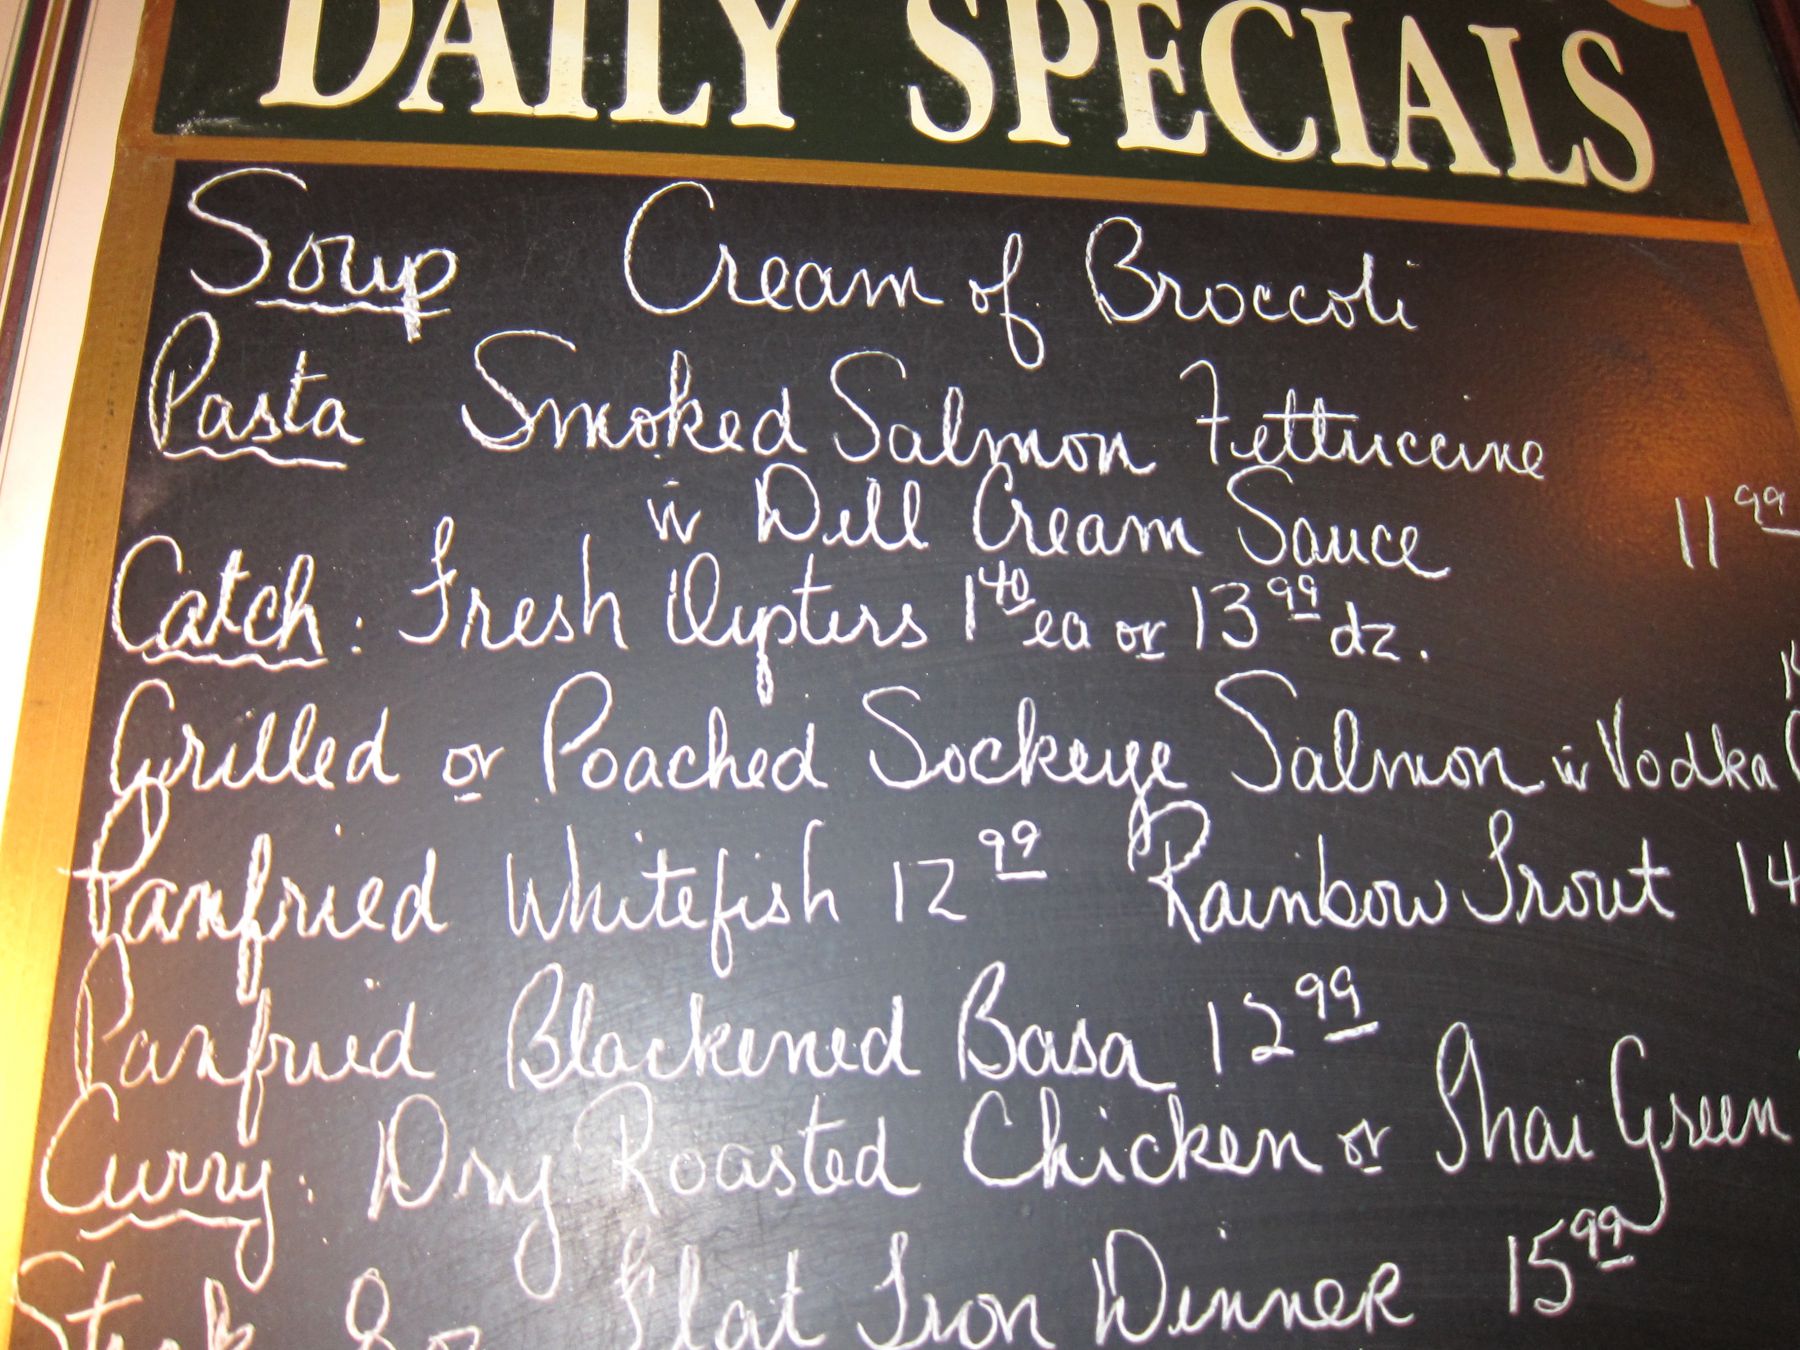 DAILY SPECIALS
Soup Cream of Broccoli
Pasta Smoked Salmon Fettuccine
in Dill Cream Sauce 11 99
Catch: Fresh Oysters 1 40 ea or 13 99 dz.
Grilled or Poached Sockeye Salmon in Vodka
Panfried Whitefish 12 99 Rainbow Trout 14
Panfried Blackened Basa 12 99
Curry: Dry Roasted Chicken or Thai Green
Steak 8 oz Flat Iron Dinner 15 99